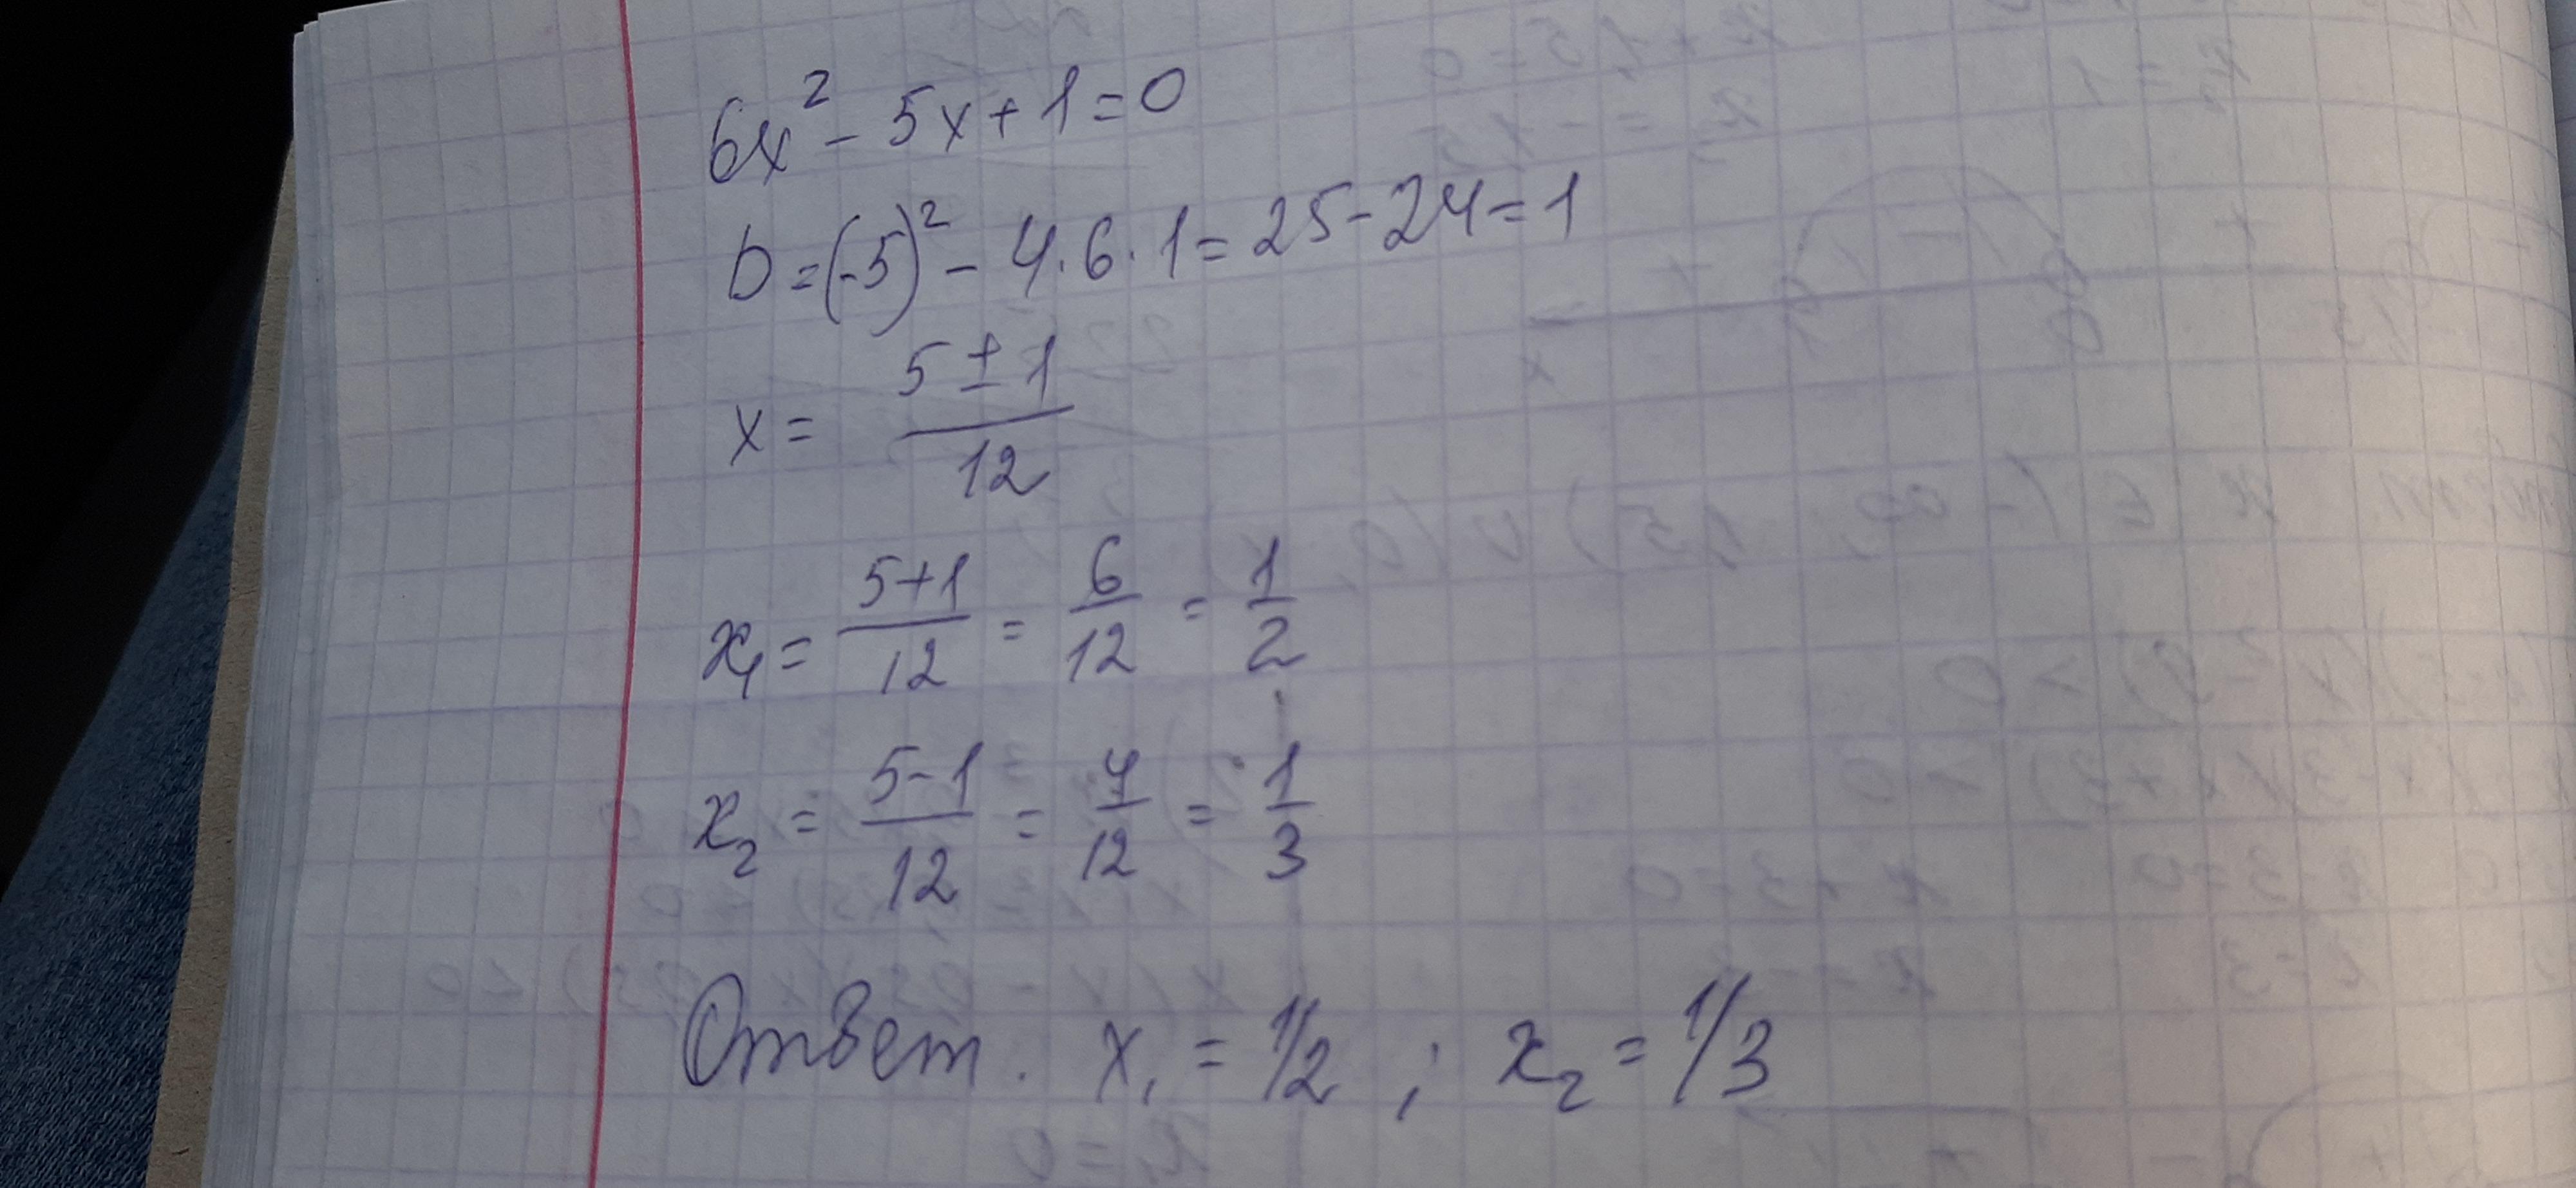 6x² - 5x + 1 = 0
D = (-5)² - 4 · 6 · 1 = 25 - 24 = 1
x = (5 ± 1)/12
x₁ = (5+1)/12 = 6/12 = 1/2
x₂ = (5-1)/12 = 4/12 = 1/3
Ответ. x₁ = 1/2 ; x₂ = 1/3